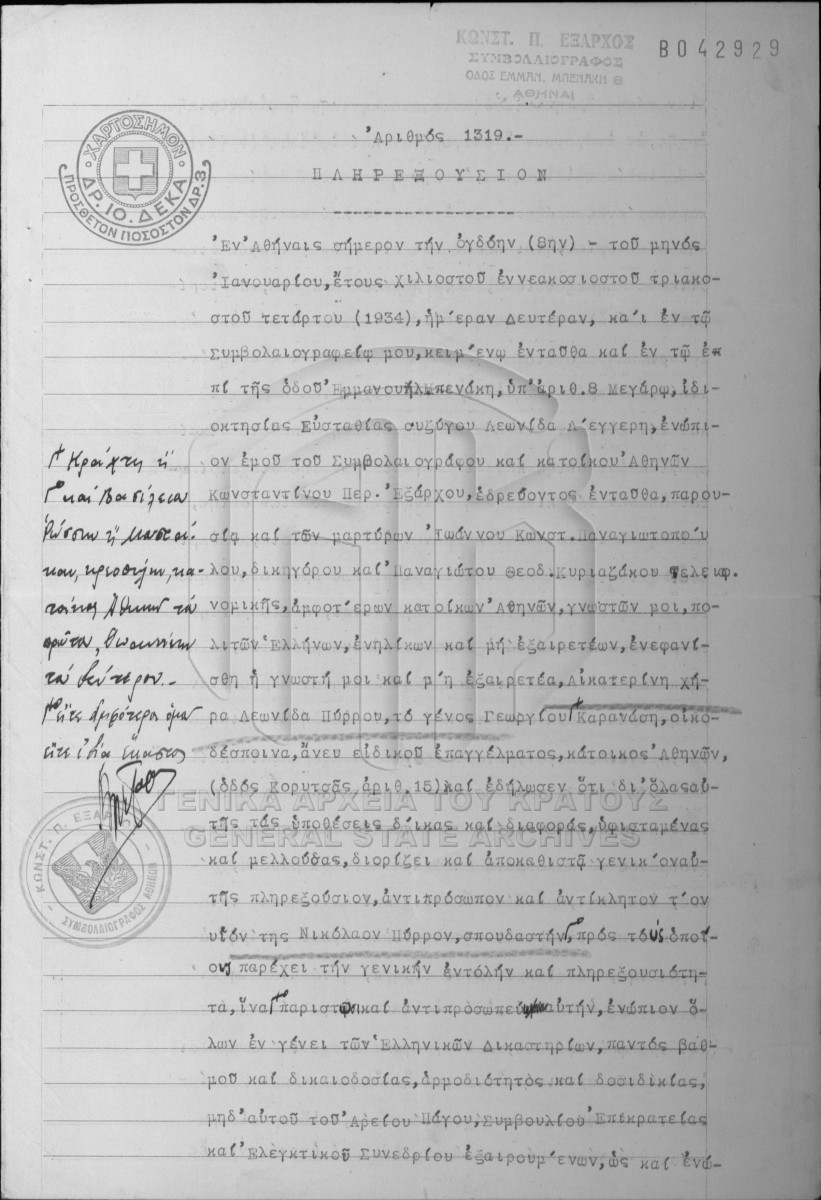 ΚΩΝΣΤ. Π. ΕΞΑΡΧΟΣ
ΣΥΜΒΟΛΑΙΟΓΡΑΦΟΣ
ΟΔΟΣ ΕΜΜΑΝ. ΜΠΕΝΑΚΗ 8
ΑΘΗΝΑΙ
B042929
ΧΑΡΤΟΣΗΜΟΝ
ΔΡ. 10. ΔΕΚΑ
ΠΡΟΣΘΕΤΟΝ ΠΟΣΟΣΤΟΝ ΔΡ. 3
Ἀριθμός 1319.-
ΠΛΗΡΕΞΟΥΣΙΟΝ
Ἐν Ἀθήναις σήμερον τήν ὀγδόην (8ην) - τοῦ μηνός
Ἰανουαρίου, ἔτους χιλιοστοῦ ἐννεακοσιοστοῦ τριακο-
στοῦ τετάρτου (1934), ἡμέραν Δευτέραν, καί ἐν τῷ
Συμβολαιογραφείῳ μου, κειμένῳ ἐνταῦθα καί ἐν τῷ ἐπ
πί τῆς ὁδοῦ Ἐμμανουήλ Μπενάκη, ὑπ' ἀριθ. 8 Μεγάρῳ, ἰδι-
οκτησίας Εὐσταθίας συζύγου Λεωνίδα Λέγγερη, ἐνώπι-
ον ἐμοῦ τοῦ Συμβολαιογράφου καί κατοίκου Ἀθηνῶν
Κωνσταντίνου Περ. Ἐξάρχου, ἑδρεύοντος ἐνταῦθα, παρου-
σίᾳ καί τῶν μαρτύρων Ἰωάννου Κωνστ. Παναγιωτοπού
λου, δικηγόρου καί Παναγιώτου Θεοδ. Κυριαζάκου τελειοφ.
νομικῆς, ἀμφοτέρων κατοίκων Ἀθηνῶν, γνωστῶν μοι, πο-
λιτῶν Ἑλλήνων, ἐνηλίκων καί μή ἐξαιρετέων, ἐνεφανί-
σθη ἡ γνωστή μοι καί μή ἐξαιρετέα, Αἰκατερίνη χή-
ρα Λεωνίδα Πύρρου, τό γένος Γεωργίου Καρανάση, οἰκο-
δέσποινα, ἄνευ εἰδικοῦ ἐπαγγέλματος, κάτοικος Ἀθηνῶν,
(ὁδός Κορυτσᾶς ἀριθ. 15) καί ἐδήλωσεν ὅτι δι' ὅλας αὐ-
τῆς τάς ὑποθέσεις δίκας καί διαφοράς, ὑφισταμένας
καί μελλούσας, διορίζει καί ἀποκαθιστᾷ γενικόν αὐ-
τῆς πληρεξούσιον, ἀντιπρόσωπον καί ἀντίκλητον τόν
υἱόν της Νικόλαον Πύρρον, σπουδαστήν, πρός τούς ὁποί-
ους παρέχει τήν γενικήν ἐντολήν καί πληρεξουσιότη-
τα, ἵνα παριστ καί ἀντιπροσωπεύ αὐτήν, ἐνώπιον ὅ-
λων ἐν γένει τῶν Ἑλληνικῶν Δικαστηρίων, παντός βαθ-
μοῦ καί δικαιοδοσίας, ἁρμοδιότητος καί δοσιδικίας,
μηδ' αὐτοῦ τοῦ Ἀρείου Πάγου, Συμβουλίου Ἐπικρατείας
καί Ἐλεγκτικοῦ Συνεδρίου ἐξαιρουμένων, ὡς καί ἐνώ-
καί Βασίλειον
κατοίκους Ἀθηνῶν τά
πρῶτα,
τό δεύτερον.-
εἴτε ἀμφότεροι ὁμοῦ
εἴτε ἰδίᾳ ἕκαστος
ΚΩΝΣΤ. Π. ΕΞΑΡΧΟΣ
ΣΥΜΒΟΛΑΙΟΓΡΑΦΟΣ ΑΘΗΝΩΝ
ΓΕΝΙΚΑ ΑΡΧΕΙΑ ΤΟΥ ΚΡΑΤΟΥΣ
GENERAL STATE ARCHIVES